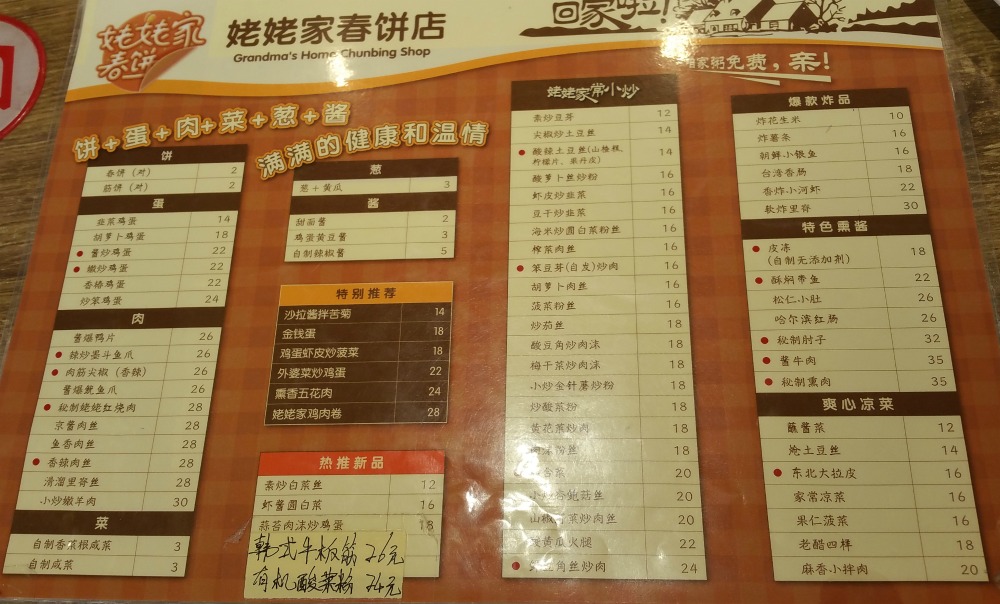 姥姥家
春饼
姥姥家春饼店
Grandma's Home Chunbing Shop
回家啦!
粥免费，亲!
饼+蛋+肉+菜+葱+酱
满满的健康和温情
饼
春饼（对） 2
筋饼（对） 2
蛋
韭菜鸡蛋 14
胡萝卜鸡蛋 18
酱炒鸡蛋 22
嫩炒鸡蛋 22
香椿鸡蛋 22
炒笨鸡蛋 24
肉
酱爆鸭片 26
辣炒墨斗鱼爪 26
肉筋尖椒（香辣） 26
酱爆鱿鱼爪 26
秘制姥姥红烧肉 28
京酱肉丝 28
鱼香肉丝 28
香辣肉丝 28
清溜里脊丝 28
小炒嫩羊肉 30
菜
自制香菜根咸菜 3
自制咸菜 3
葱
葱+黄瓜 3
酱
甜面酱 2
鸡蛋黄豆酱 3
自制辣椒酱 5
特别推荐
沙拉酱拌苦菊 14
金钱蛋 18
鸡蛋虾皮炒菠菜 18
外婆菜炒鸡蛋 22
熏香五花肉 24
姥姥家鸡肉卷 28
热推新品
素炒白菜丝 12
虾酱圆白菜 16
蒜苔肉沫炒鸡蛋 18
韩式牛板筋 26元
有机酸菜粉 24元
姥姥家常小炒
素炒豆芽 12
尖椒炒土豆丝 14
酸辣土豆丝(山楂糕、
柠檬片、果丹皮) 14
酸萝卜丝炒粉 16
虾皮炒韭菜 16
豆干炒韭菜 16
海米炒圆白菜粉丝 16
榨菜肉丝 16
笨豆芽(自发)炒肉 16
胡萝卜肉丝 16
菠菜粉丝 16
炒茄丝 18
酸豆角炒肉沫 18
梅干菜炒肉沫 18
小炒金针蘑炒粉 18
炒酸菜粉 18
黄花菜炒肉 18
粉丝 18
菜 20
小炒杏鲍菇丝 20
山椒 菜炒肉丝 20
黄瓜火腿 22
豆角丝炒肉 24
爆款炸品
炸花生米 10
炸薯条 16
朝鲜小银鱼 16
台湾香肠 18
香炸小河虾 22
软炸里脊 30
特色熏酱
皮冻
(自制无添加剂) 18
酥焖带鱼 22
松仁小肚 26
哈尔滨红肠 26
秘制肘子 32
酱牛肉 35
秘制熏肉 35
爽心凉菜
蘸酱菜 12
炝土豆丝 14
东北大拉皮 16
家常凉菜 16
果仁菠菜 16
老醋四样 18
麻香小拌肉 20